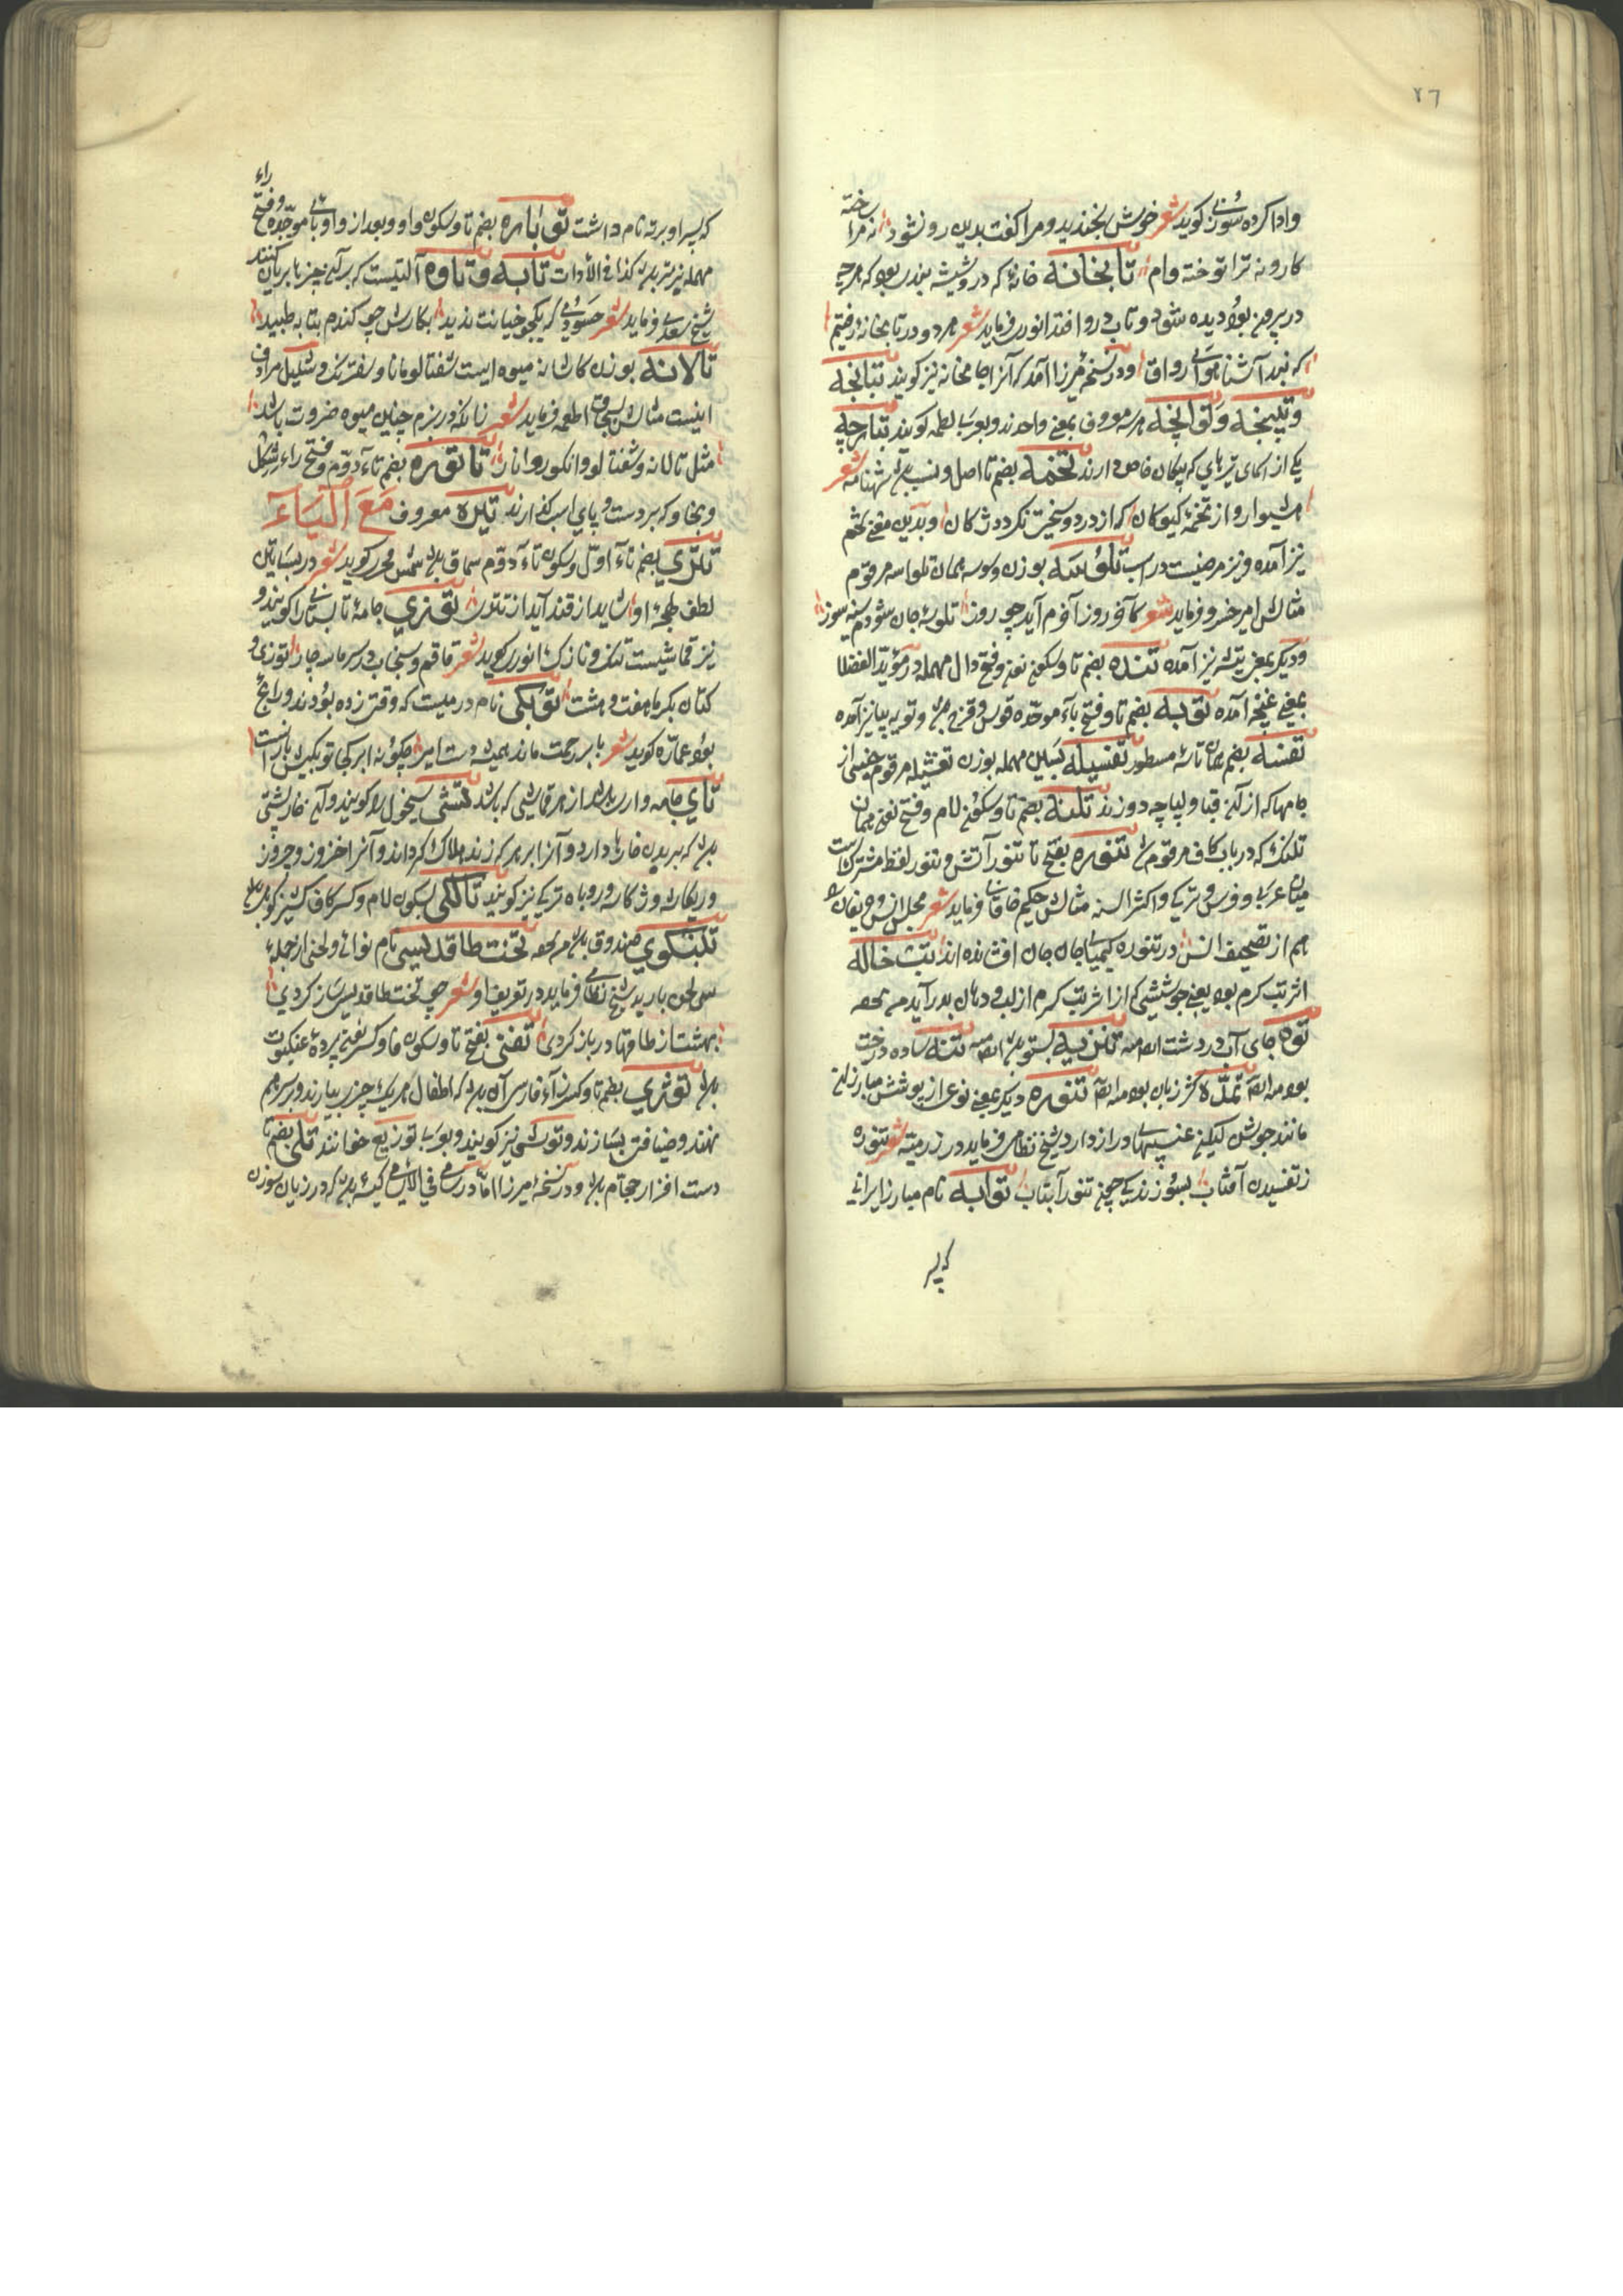 ٢٦
وادا کرده سوزنی کوید شعر خوش بخندید و مرا کفت بدین رو نشود نه مرا ساخته
کار و نه ترا توخته وام تابخانه خانهٔ که درو شیشه بندی بود که هرچه
در بیرون بود دیده شود و تاب درو افتد انوری فرماید شعر هر دو در تابخانه رفتیم
که نبد آشنا هوای رواق و در نسخهٔ میرزا آمد که آنرا جامخانه نیز کویند تبانجه
وتپنجه وتوانجه هر سه معروف بمعنی واحدند و بعربی لطمه کویند تبارچه
یکی از اکمای تیرهای که پیکان خاص دارند تخمه بضم تا اصل و نسب باشد شهنامه شعر
هشیوار و از تخمهٔ کیوکان که از درد و سختی نکردد ژکان و بدین معنی تخم
نیز آمده و نیز مرضیست در اسب تلوسه بوزن وسوسه همان تلواسه مرقوم
مثالش امیر خسرو فرماید شعر کافر روز آفرم آید چو روز تلوسهٔ جان شودم سینه سوز
ودیکر بمعنی تیشه نیز آمده تنده بضم تا وسکون نون وفتح دال مهمله در مؤید الفضلا
بمعنی غنچه آمده توبه بضم تا وفتح باء موحده قوس و قزح باشد و توبه بیا نیز آمده
تفسه بضم همان تاسهٔ مسطور تفسیله بسین مهمله بوزن تفشیله مرقوم جنسی از
جامها که از آن قبا و لباچه دوزند تلنه بضم تا وسکون لام وفتح نون همان
تلنک که در باب کاف مرقوم شد تنوره بفتح تا تنور آتش و تنور لفظ مشترکست
میان عربی و فرس و ترکی و اکثر السنه مثالش حکیم خاقانی فرماید شعر مجلس انس حریفان را
هم از تصحیف انس در تنوره کیمیای جان جان افشانده اند تبخاله
اثر تب کرم بود یعنی جوششی که از اثر تب کرم از لب و دهان بدر آید من تحفه
توه جای آب در دشت ایضا منه تنزیه بستو باشد ایضا منه تنه ساده درخت
بود منه ایضا تمله کژ زبان بود منه ایضا تنوره دیکر بمعنی نوعی از پوشش مبارزان
مانند جوشن لیکن غیبهای دراز دارد شیخ نظامی فرماید در رزمیه شعر تنوره
ز تفسیدن آفتاب بسوزندکی چون تنور آبتاب توابه نام مبارز ایرانی
که پسر
که پسر او برته نام داشت توباره بضم تا وسکون واو و بعد از واو بای موحده وفتح راء
مهمله نیز تیر باشد کذا فی الادات تابه وتاوه آلتیست که بر آن چیزها بریان کنند
شیخ سعدی فرماید شعر حسودی که یکجو خیانت ندید بکارش چو کندم بتابه طپید
تالانه بوزن کاشانه میوه ایست شفتالو مانا و شفترنک و شلیل مرادف
اینست مثالش بسحق اطعمه فرماید شعر زانکه در بزم چنین میوه ضرورت باشد
مثل تالانه وشفتالو و انکور و انار تاتوره بضم تاء دوم وفتح راء اشکیل
وبخاو که بر دست و پای اسب کذارند تیره معروف مع الیاء
تتری بضم تاء اول وسکون تاء دوم سماق باشد شمس فخری کوید شعر در بساتین
لطف طهجهٔ او شاید از قند آید از تتری توزی جامهٔ تابستانی را کویند و
نیز قماشیست تنک و نازک انوری کوید شعر قاقم وسنجاب در سرما سه چار توزی و
کتان بکرما هفت و هشت توبکی نام درمیست که وقتی زده بودند و رایج
بود عماره کوید شعر با بر رحمت ماند همیشه دست امیر چکونه ابر کجا توبکیش بارانست
تای جامه وار باشد از هر قماشی که باشد تشی سیخول را کویند و آن خارپشتی
باشد که بر بدن خارها دارد و آنرا بر هر که زند هلاک کرداند و آنرا خزوز و چروز
وریکاشه وژکاسه و روباه ترکی نیز کویند تالکی بسکون لام وکسر کاف کشنیز کوهی باشد
تلنکوی صندوق باشد من تحفه تخت طاقدیسی نام نوائی و لحنی از جملهٔ
سی لحن باربد شیخ نظامی فرماید در تعریف او شعر چو تخت طاقدیسی ساز کردی
بهشت از طاقها در باز کردی تفنی بفتح تا وسکون فا وکسر نون پردهٔ عنکبوت
باشد توژی بضم تا وکسر زاء فارسی آن باشد که اطفال هر یک چیزی بیارند و بر سر هم
نهند و ضیافتی بسازند و توشی نیز کویند و بعربی توزیع خوانند تلی بضم تا
دست افزار حجام باشد و در نسخهٔ میرزا اما در سامی فی الاسامی کیسهٔ باشد که درزیان سوزن